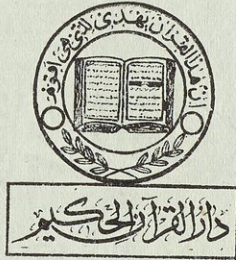 ان هذا القرآن يهدي للتي هي أقوم
دار القرآن الحكيم